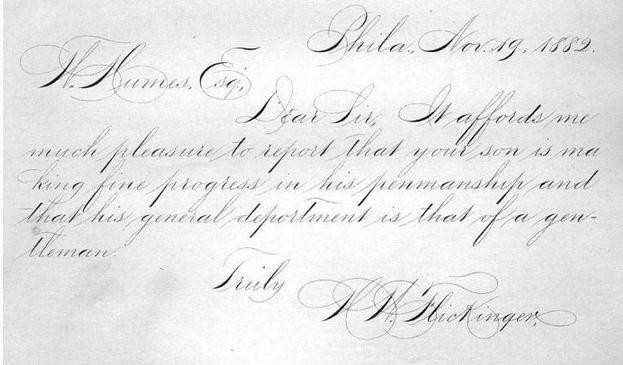 Phila., Nov. 19, 1882.
W. Humes, Esq.,
Dear Sir, It affords me
much pleasure to report that your son is ma
king fine progress in his penmanship and
that his general deportment is that of a gen-
tleman.
Truly
W. W. Flickinger.